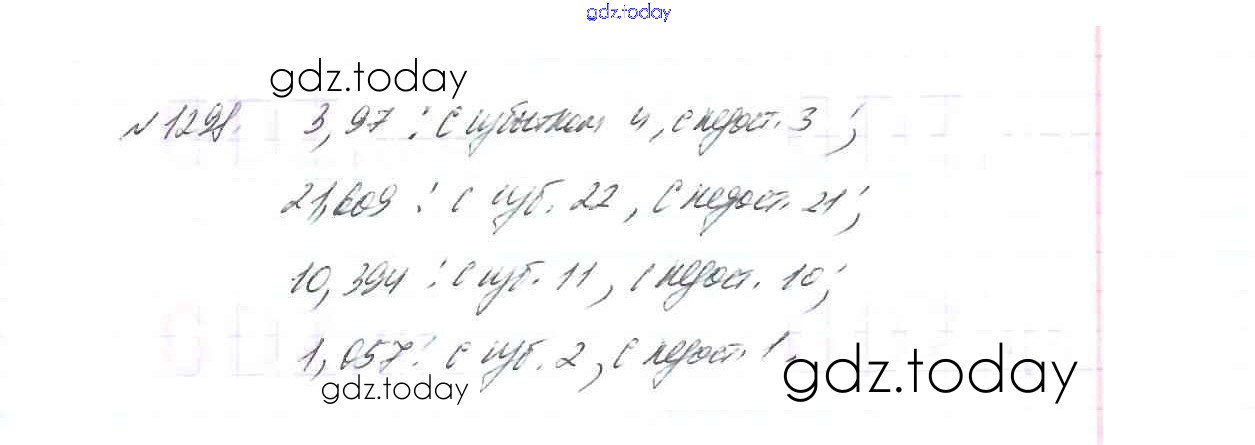 gdz.today
gdz.today
№ 1298. 3,97 : с избытком 4, с недост. 3 ;
21,609 : с изб. 22, с недост. 21 ;
10,394 : с изб. 11, с недост. 10 ;
1,057 : с изб. 2, с недост. 1.
gdz.today
gdz.today